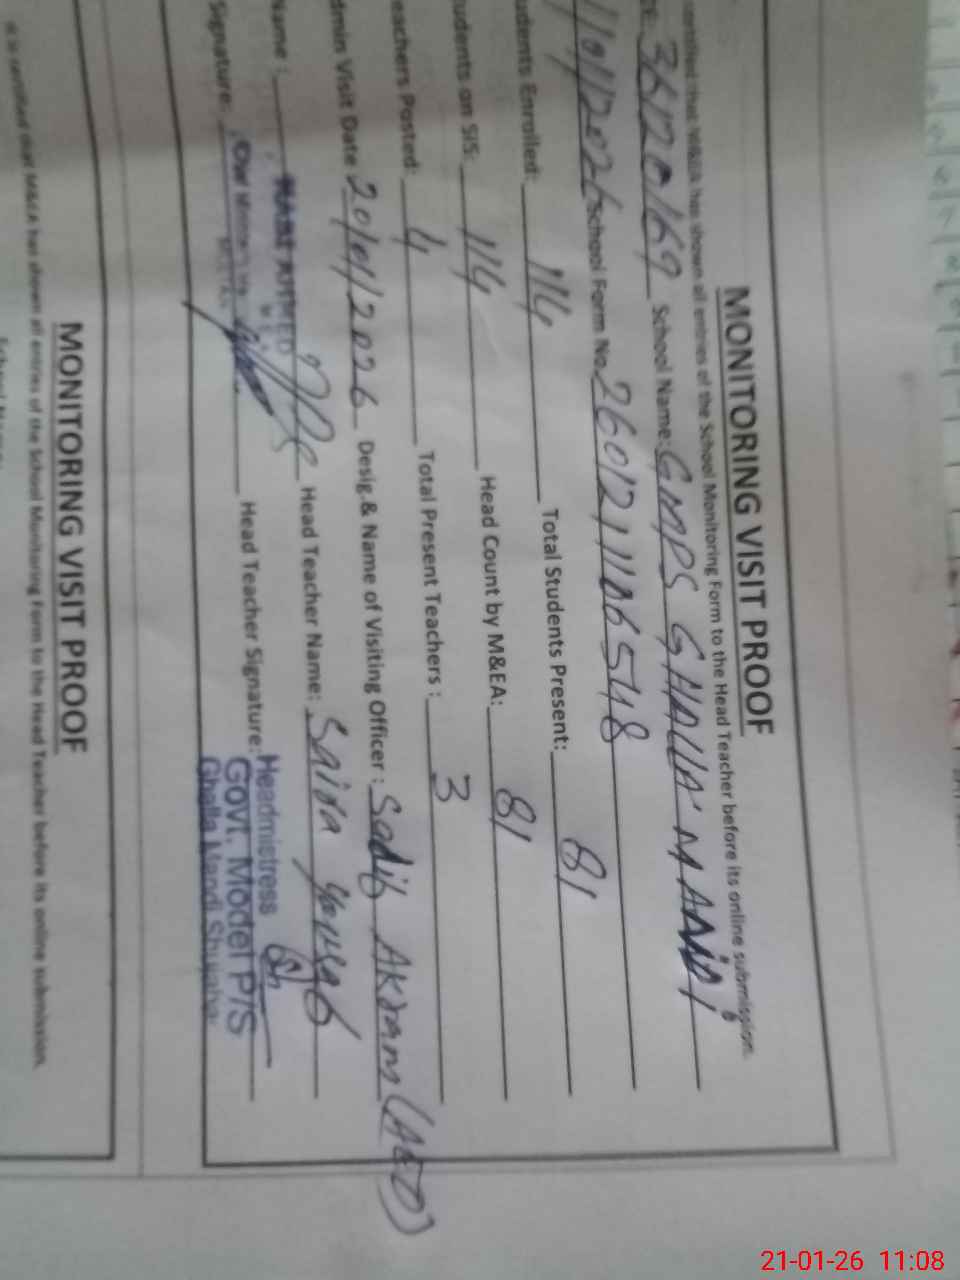 MONITORING VISIT PROOF
certified that M&EA has shown all entries of the School Monitoring Form to the Head Teacher before its online submission.
School Name: GMPS GHALLA MANDI
School Form No. 2601211106548
Students Enrolled: 114 Total Students Present: 81
Students on SIS: 114 Head Count by M&EA: 81
Teachers Posted: 4 Total Present Teachers : 3
dmin Visit Date 20/01/2026 Desig.& Name of Visiting Officer : Sadif Akram (AEO)
Name : AHMED Head Teacher Name: Saira Yousaf
Signature: Head Teacher Signature:
Headmistress
Govt. Model P/S
Ghalla Mandi
MONITORING VISIT PROOF
It is certified that M&EA has shown all entries of the School Monitoring Form to the Head Teacher before its online submission.
School Name:
21-01-26 11:08